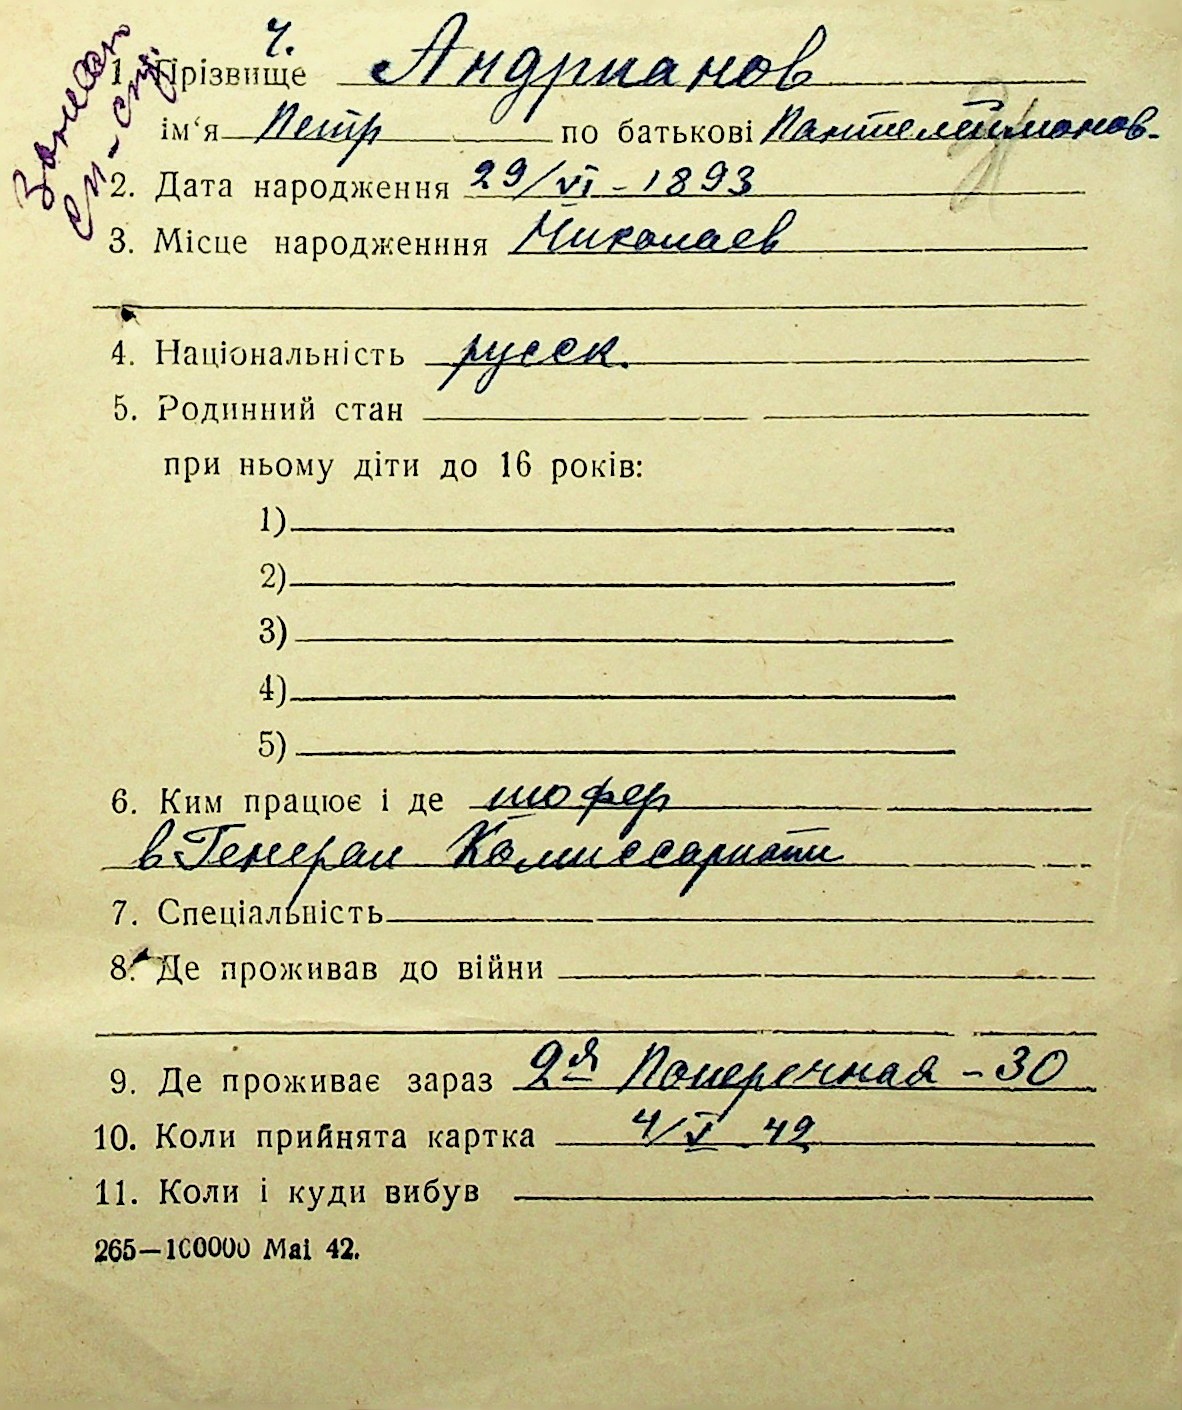 ч.
1. Прізвище Андрианов
ім‘я Петр по батькові Пантелеймонов-
2. Дата народження 29/VI - 1893
3. Місце народженння Николаев
4. Національність русск.
5. Родинний стан
при ньому діти до 16 років:
1)
2)
3)
4)
5)
6. Ким працює і де шофер
в Генерал Комиссариати
7. Спеціальність
8. Де проживав до війни
9. Де проживає зараз 2я Поперечная - 30
10. Коли прийнята картка 4/V 42
11. Коли і куди вибув
265—100000 Mai 42.